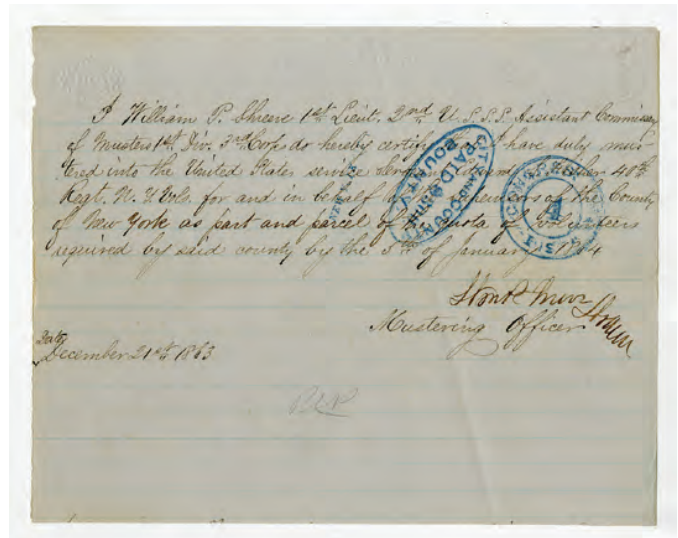 I William P. Shreve 1st Lieut. 2nd U.S.S.S. Assistant Commissary
of Musters 1st Div. 3rd Corp do hereby certify that I have duly mus-
tered into the United States service 40th
Regt. N. Y. Vols. for and in behalf of the Supervisors of the County
of New York as part and parcel of the quota of Volunteers
required by said county by the 5th of January 1864
Mustering Officer
Date
December 21st 1863
PAID
BOUNTY
4